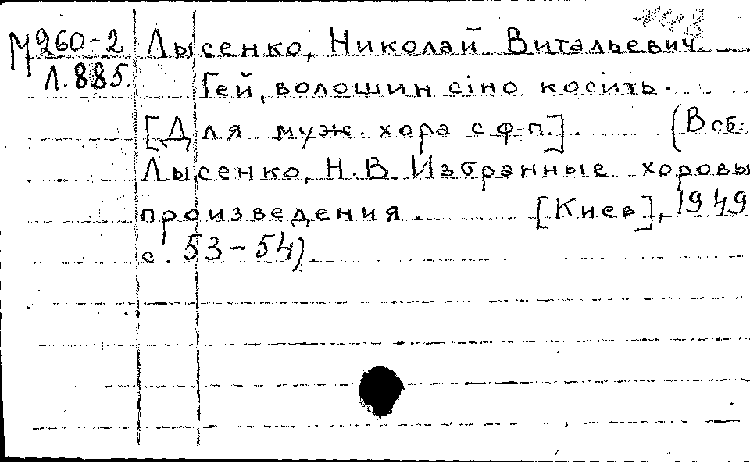 М 260-2 Лысенко, Николай Витальевич
Л.885. Гей, волошин сіно косить.
[Для муж. хора с ф-п.]. (В сб:
Лысенко, Н.В. Избранные хоровы
произведения. [Киев], 1949
с. 53-54)